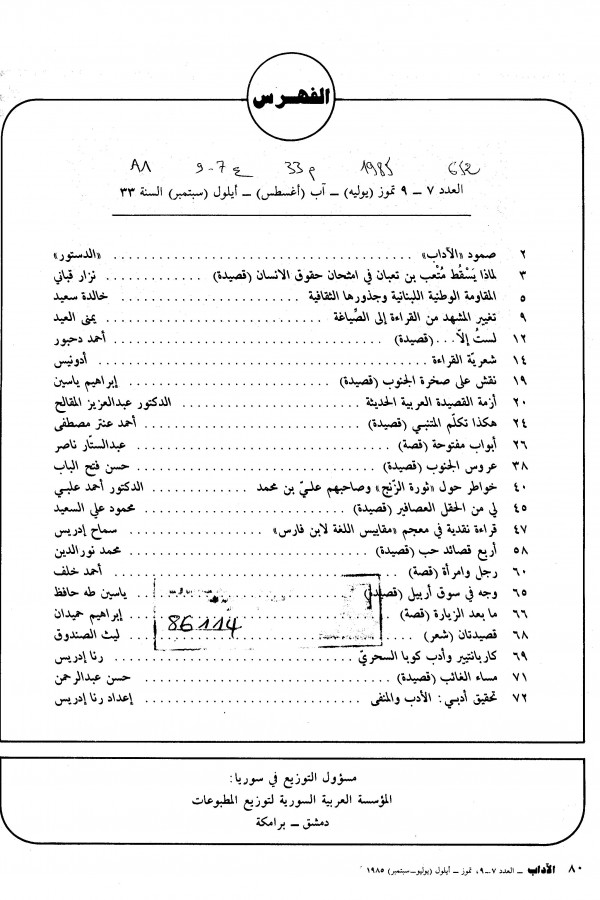 الفهـرس
A1 9-7 ع 33 م 1985
العدد ٧ – ٩ تموز (يوليه) – آب (أغسطس) – أيلول (سبتمبر) السنة ٣٣
٢ صمود «الآداب» «الدستور»
٣ لماذا يَسْقُط مُتْعب بن تعبان في امتحان حقوق الانسان (قصيدة) نزار قباني
٥ المقاومة الوطنية اللبنانية وجذورها الثقافية خالدة سعيد
٩ تغيير المشهد من القراءة إلى الصِّياغة يمنى العيد
١٢ لستُ إلّا... (قصيدة) أحمد دحبور
١٤ شعريّة القراءة أدونيس
١٩ نقش على صخرة الجنوب (قصيدة) إبراهيم ياسين
٢٠ أزمة القصيدة العربية الحديثة الدكتور عبدالعزيز المقالح
٢٤ هكذا تكلّم المتنبي (قصيدة) أحمد عنتر مصطفى
٢٦ أبواب مفتوحة (قصة) عبدالستّار ناصر
٣٨ عروس الجنوب (قصيدة) حسن فتح الباب
٤٠ خواطر حول «ثورة الزّنج» وصاحبهم عليّ بن محمد الدكتور أحمد علبي
٤٥ لي من الحقل العصافير (قصيدة) محمود علي السعيد
٤٧ قراءة نقدية في معجم «مقاييس اللغة لابن فارس» سماح إدريس
٥٨ أربع قصائد حب (قصيدة) محمد نورالدين
٦٠ رجل وامرأة (قصة) أحمد خلف
٦٥ وجه في سوق أربيل (قصيدة) ياسين طه حافظ
٦٦ ما بعد الزيارة (قصة) إبراهيم حميدان
٦٨ قصيدتان (شعر) ليث الصندوق
86114
٦٩ كاربانتيير وأدب كوبا السحريّ رنا إدريس
٧١ مساء الغائب (قصيدة) حسن عبدالرحمن
٧٢ تحقيق أدبي: الأدب والمنفى إعداد رنا إدريس
مسؤول التوزيع في سوريا:
المؤسسة العربية السورية لتوزيع المطبوعات
دمشق – برامكة
٨٠ الآداب – العدد ٧–٩، تموز – أيلول (يوليو–سبتمبر) ١٩٨٥